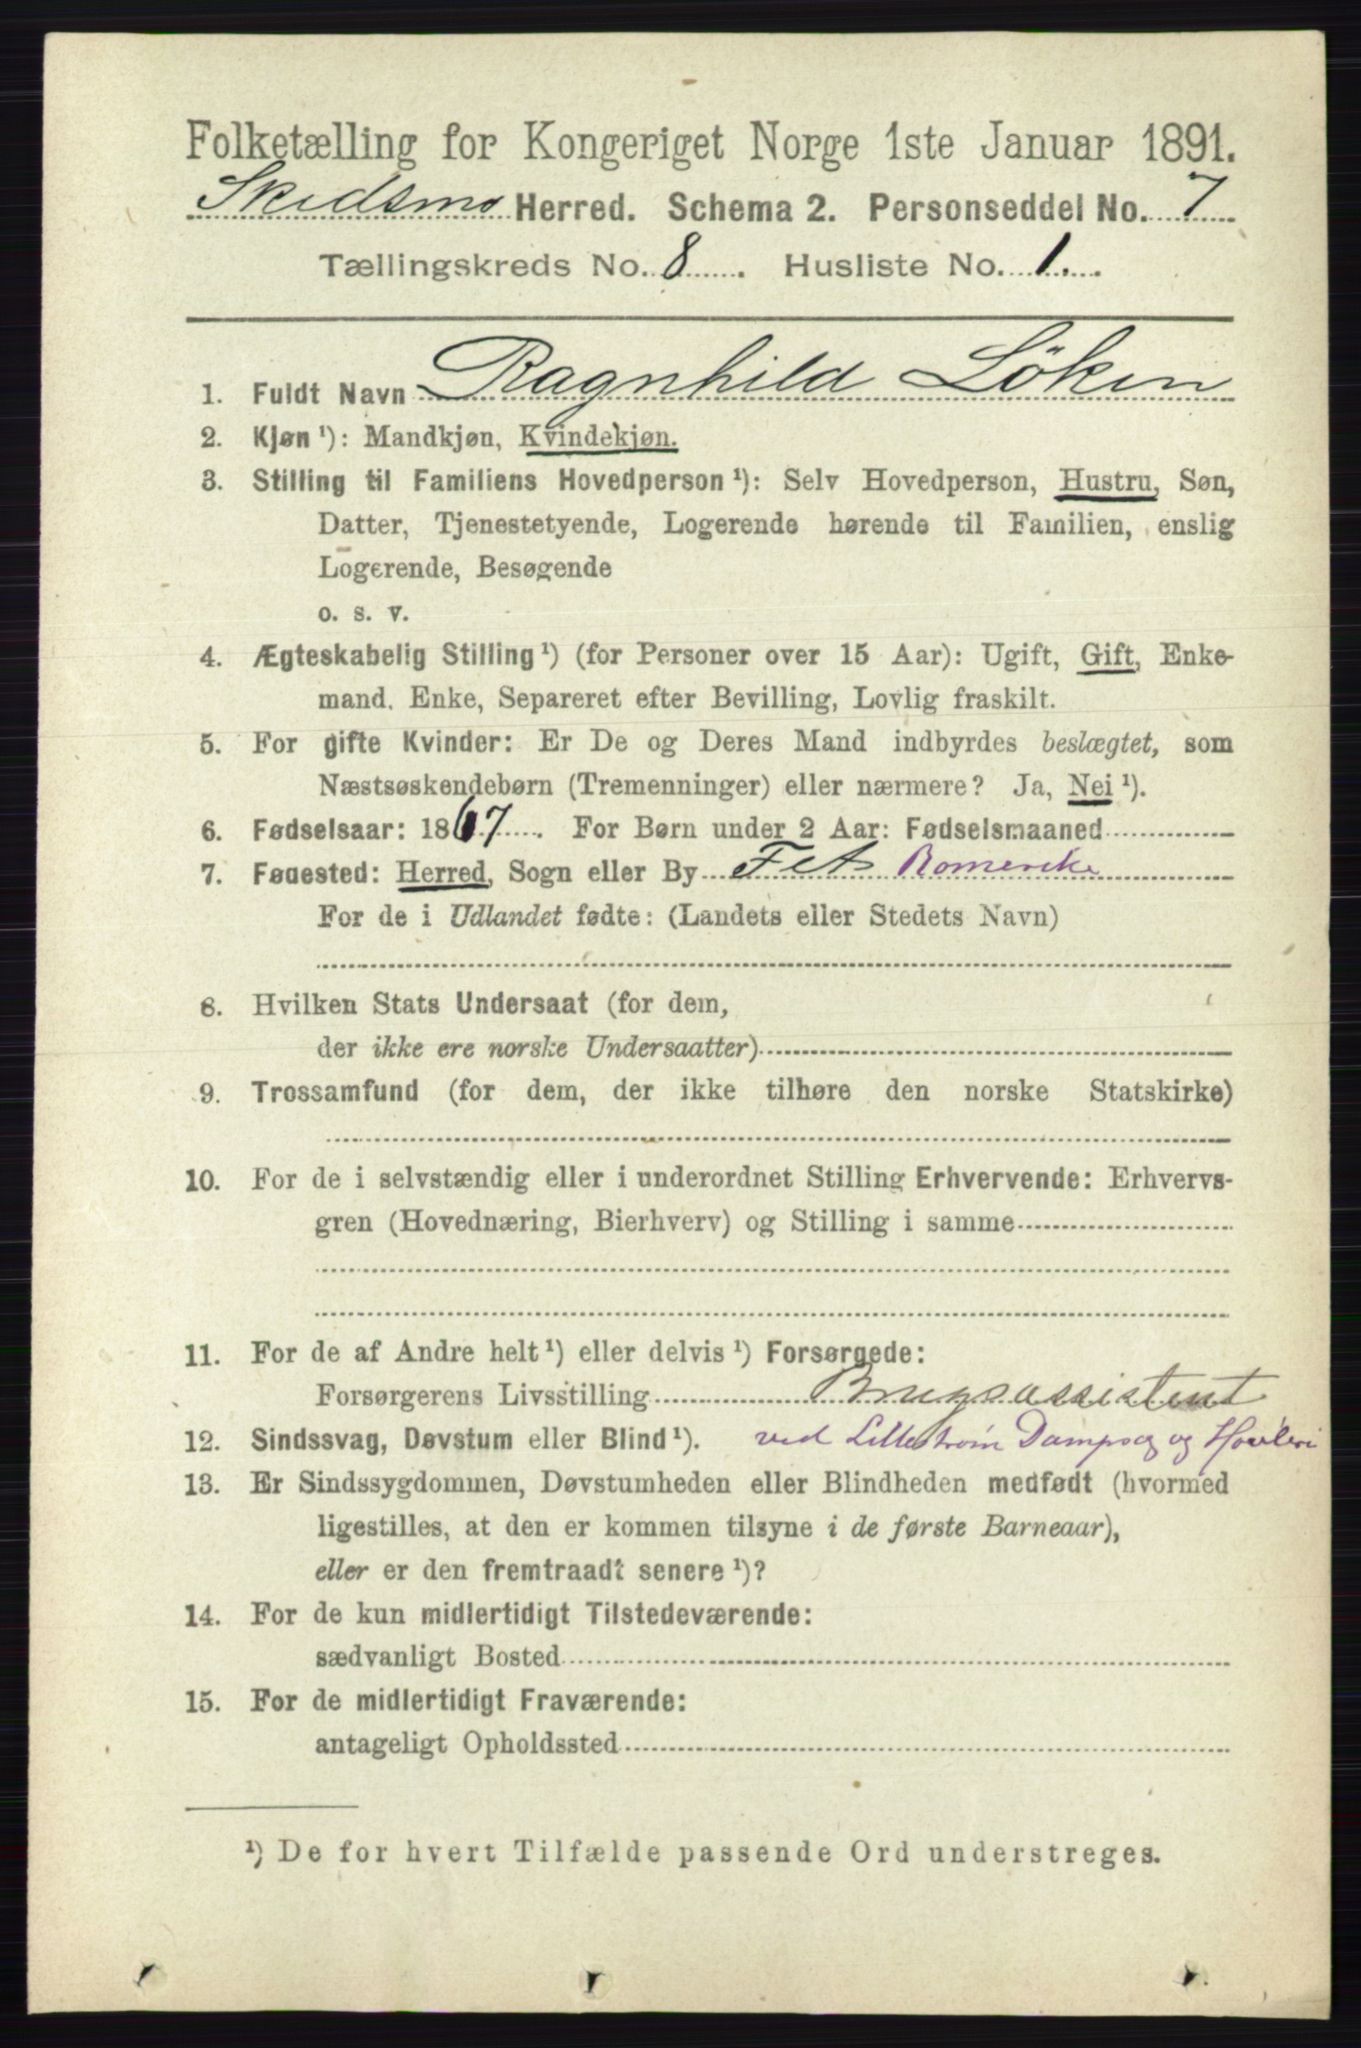 Folketælling for Kongeriget Norge 1ste Januar 1891.
Skedsmo Herred. Schema 2. Personseddel No. 7
Tællingskreds No. 8. Husliste No. 1.
1. Fuldt Navn Ragnhild Löken
2. Kjøn ¹): Mandkjøn, Kvindekjøn.
3. Stilling til Familiens Hovedperson ¹): Selv Hovedperson, Hustru, Søn,
Datter, Tjenestetyende, Logerende hørende til Familien, enslig
Logerende, Besøgende
o. s. v.
4. Ægteskabelig Stilling ¹) (for Personer over 15 Aar): Ugift, Gift, Enke-
mand, Enke, Separeret efter Bevilling, Lovlig fraskilt.
5. For gifte Kvinder: Er De og Deres Mand indbyrdes beslægtet, som
Næstsøskendebørn (Tremenninger) eller nærmere? Ja, Nei ¹).
6. Fødselsaar: 1867. For Børn under 2 Aar: Fødselsmaaned
7. Fødested: Herred, Sogn eller By Fet Romerike
For de i Udlandet fødte: (Landets eller Stedets Navn)
8. Hvilken Stats Undersaat (for dem,
der ikke ere norske Undersaatter)
9. Trossamfund (for dem, der ikke tilhøre den norske Statskirke)
10. For de i selvstændig eller i underordnet Stilling Erhvervende: Erhvervs-
gren (Hovednæring, Bierhverv) og Stilling i samme
11. For de af Andre helt ¹) eller delvis ¹) Forsørgede:
Forsørgerens Livsstilling Brugsassistent
12. Sindssvag, Døvstum eller Blind ¹). ved Lillestrøm Dampsag og Høvleri
13. Er Sindssygdommen, Døvstumheden eller Blindheden medfødt (hvormed
ligestilles, at den er kommen tilsyne i de første Barneaar),
eller er den fremtraadt senere ¹)?
14. For de kun midlertidigt Tilstedeværende:
sædvanligt Bosted
15. For de midlertidigt Fraværende:
antageligt Opholdssted
¹) De for hvert Tilfælde passende Ord understreges.